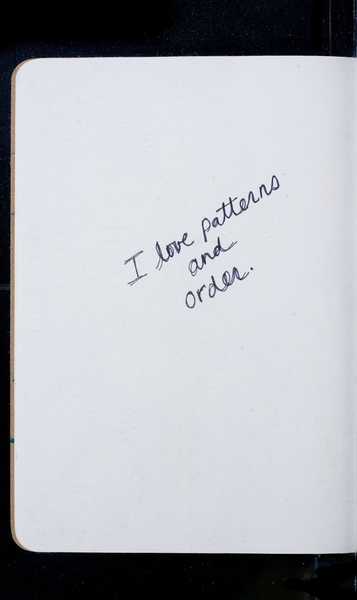 I love patterns
and
order.